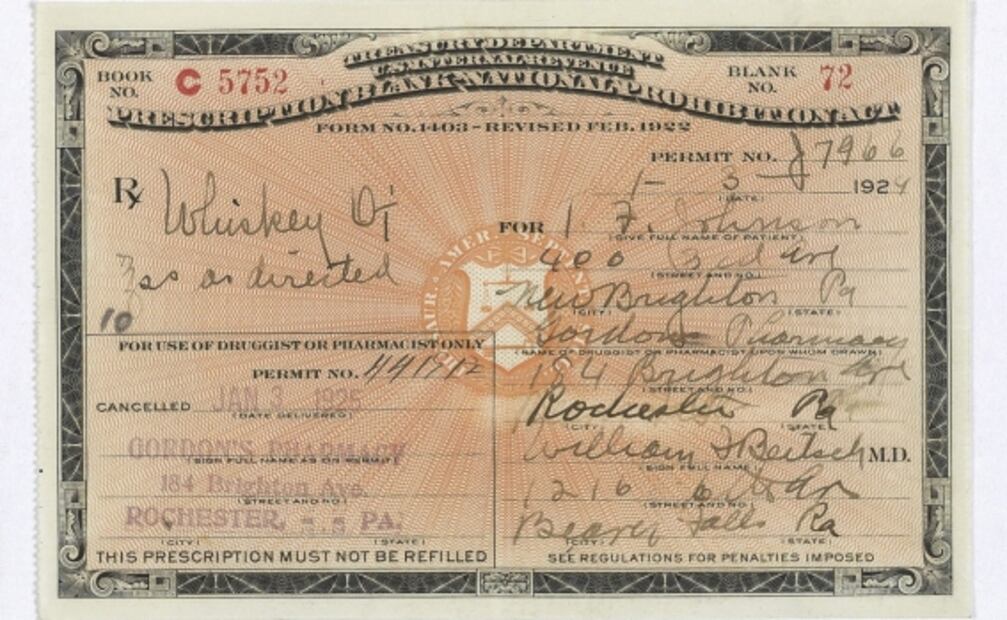 TREASURY DEPARTMENT
U.S. INTERNAL REVENUE
PRESCRIPTION BLANK-NATIONAL PROHIBITION ACT
FORM NO. 1403-REVISED FEB. 1922
BOOK NO. C 5752
BLANK NO. 72
PERMIT NO. J7966
1- 3 - 1924
(DATE)
Rx Whiskey
as directed
10
FOR Johnson
(GIVE FULL NAME OF PATIENT)
400 Ave
(STREET AND NO.)
New Brighton Pa
(CITY) (STATE)
Gordons Pharmacy
(NAME OF DRUGGIST OR PHARMACIST UPON WHOM DRAWN)
184 Brighton Ave
(STREET AND NO.)
Rochester Pa
(CITY) (STATE)
William F Beitsch M.D.
(SIGN FULL NAME)
1216
(STREET AND NO.)
Beaver Falls Pa
(CITY) (STATE)
SEE REGULATIONS FOR PENALTIES IMPOSED
FOR USE OF DRUGGIST OR PHARMACIST ONLY
PERMIT NO.
CANCELLED JAN 3
(DATE DELIVERED)
GORDON'S PHARMACY
(SIGN FULL NAME AS ON PERMIT)
184 Brighton Ave.
(STREET AND NO.)
ROCHESTER, PA.
(CITY) (STATE)
THIS PRESCRIPTION MUST NOT BE REFILLED